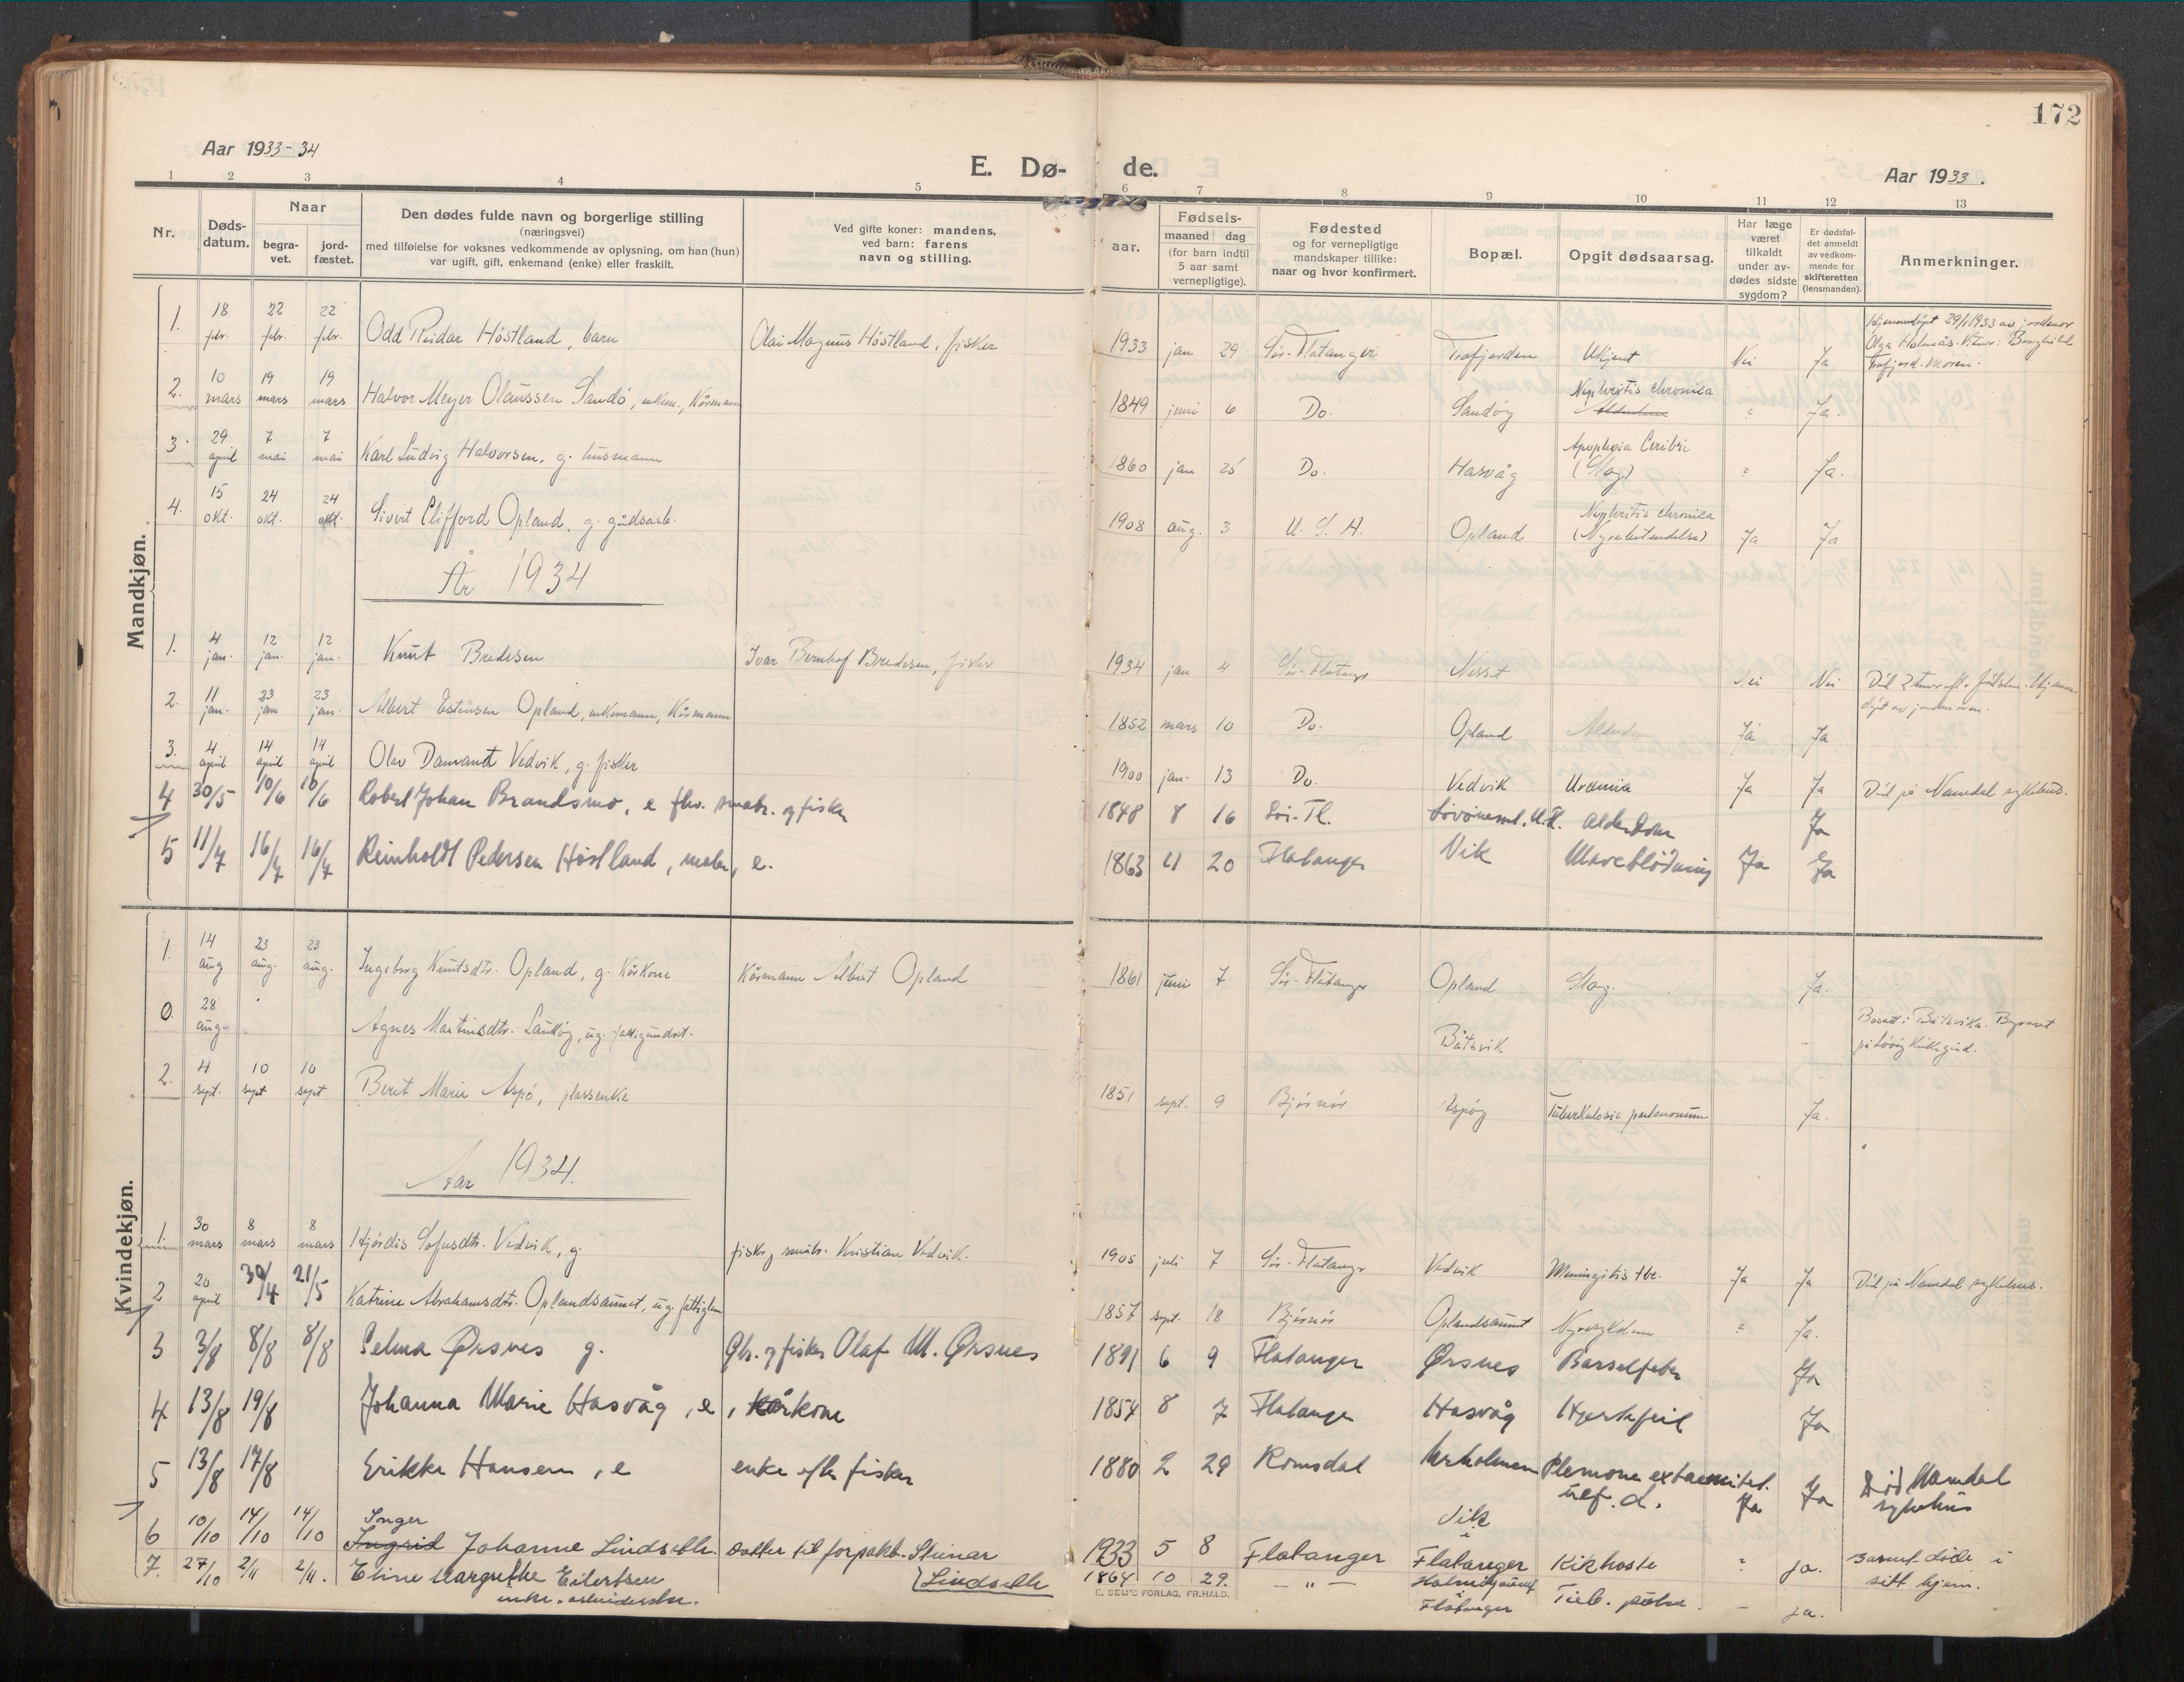 172
Aar 1933-34
E. Dø- de.
Aar 1933.
1 2 3 4 5 6 7 8 9 10 11 12 13
Nr.
Døds-
datum.
Naar
begra-
vet.
jord-
fæstet.
Den dødes fulde navn og borgerlige stilling
(næringsvei)
med tilføielse for voksnes vedkommende av oplysning, om han (hun)
var ugift, gift, enkemand (enke) eller fraskilt.
Ved gifte koner: mandens,
ved barn: farens
navn og stilling.
aar.
Fødsels-
maaned dag
(for barn indtil
5 aar samt
vernepligtige).
Fødested
og for vernepligtige
mandskaper tillike:
naar og hvor konfirmert.
Bopæl.
Opgit dødsaarsag.
Har læge
været
tilkaldt
under av-
dødes sidste
sygdom?
Er dødsfal-
det anmeldt
av vedkom-
mende for
skifteretten
(lensmanden).
Anmerkninger.
Mandkjøn.
1. 18 febr. 22 febr. 22 febr. Odd Reidar Høstland, barn Olai Magnus Høstland, fisker 1933 jan 29 Sör-Flatanger Trafjorden Ukjent Nei Ja Hjemmedöpt 29/1 1933 av jordmor
Olga Holmås. Vitner: Borghild
Trefjord. Moren.
2. 10 mars 19 mars 19 mars Halvor Meyer Olaussen Sandö, enkem., Kårmann 1849 juni 6 Do. Sandöy Nephritis chronica Alderdom " Ja.
3. 29 april 7 mai 7 mai Karl Ludvig Halvorsen, g. husmann 1860 jan 25 Do. Hasvåg Apoplexia Cerebri (Slag) " Ja.
4. 15 okt. 24 okt. 24 okt. Sivert Clifford Opland, g. gårdsarb. 1908 aug. 3 U. S. A. Opland Nephritis chronica (Nyrebetendelse) Ja Ja
År 1934
1. 4 jan. 12 jan. 12 jan. Knut Bredesen Ivar Bernhof Bredesen, fisker 1934 jan 4 Sör-Flatangr Nesset Nei Nei Död 2 timer eft. födslen. Hjemme-
döpt av jordmoren.
2. 11 jan. 23 jan 23 jan. Albert Estensen Opland, enkemann, Kårmann 1852 mars 10 Do. Opland Alderdom Ja Ja
3. 4 april 14 april 14 april Olav Damandt Vedvik, g. fisker 1900 jan. 13 Do. Vedvik Uræmia Ja Ja Död på Namdal sykehus.
4 30/5 10/6 10/6 Robert Johan Brandsmo, e fhv. smabr. og fisker 1848 8 16 Sör-Fl. alderdom Ja
5 11/7 16/7 16/7 Reinholdt Pedersen Höstland, maler, e. 1863 11 20 Flatanger Vik Maveblödning Ja Ja
Kvindekjøn.
1. 14 aug 23 aug. 23 aug. Ingeborg Knutsdtr. Opland, g. Kårkone Kårmann Albert Opland 1861 juni 7 Sör-Flatangr Opland Slag. Ja.
0. 28 aug. Agnes Martinsdtr. Lauköy, ug. fattigunderst. Båtsvik - Bosatt i Båtsvika. Begravet
på Lövöy kirkegård.
2. 4 sept. 10 sept 10 sept Berit Marie Aspö, plassenke 1851 sept. 9 Björnör Aspöy Tuberkulosis pulmonum Ja.
Aar 1934.
1 30 mars 8 mars 8 mars Hjördis Sofusdtr. Vedvik, g. fisker, småbr. Kristian Vedvik. 1905 juli 7 Sör-Flatangr Vedvik Meningitis tbc. Ja Ja Död på Namdal sykehus.
2 20 april 30/4 21/5 Katrine Abrahamsdtr. Oplandsaunet, ug. fattiglem 1857 sept. 18 Björnör Oplandsaunet Nyresykdom " Ja.
3 3/8 8/8 8/8 Selma Ørsnes g. Gbr. og fisker Olaf M. Ørsnes 1891 6 9 Flatanger Ørsnes Barselfeber Ja
4 13/8 19/8 Johanna Marie Hasvåg, e, kårkone 1854 8 7 Flatanger Hasvåg Hjertefeil Ja
5 13/8 17/8 Erikke Hansen, e enke efter fisker 1880 2 29 Romsdal extremitet. Ja Ja Død Namdal
sykehus
6 10/10 14/10 14/10 Inger
Ingrid Johanne Lindseth. Datter til forpakt. Steinar
Lindseth 1933 5 8 Flatanger Vik
i
Flatanger Kikhoste " ja. Barnet døde i
sitt hjem.
7. 27/10 2/11 2/11. Eline Margrethe Eilertsen
enke. arbeiderske. 1864 10 29. - " - Flatanger Tub. pulm. - ja.
E. SEM'S FORLAG, FR.HALD.